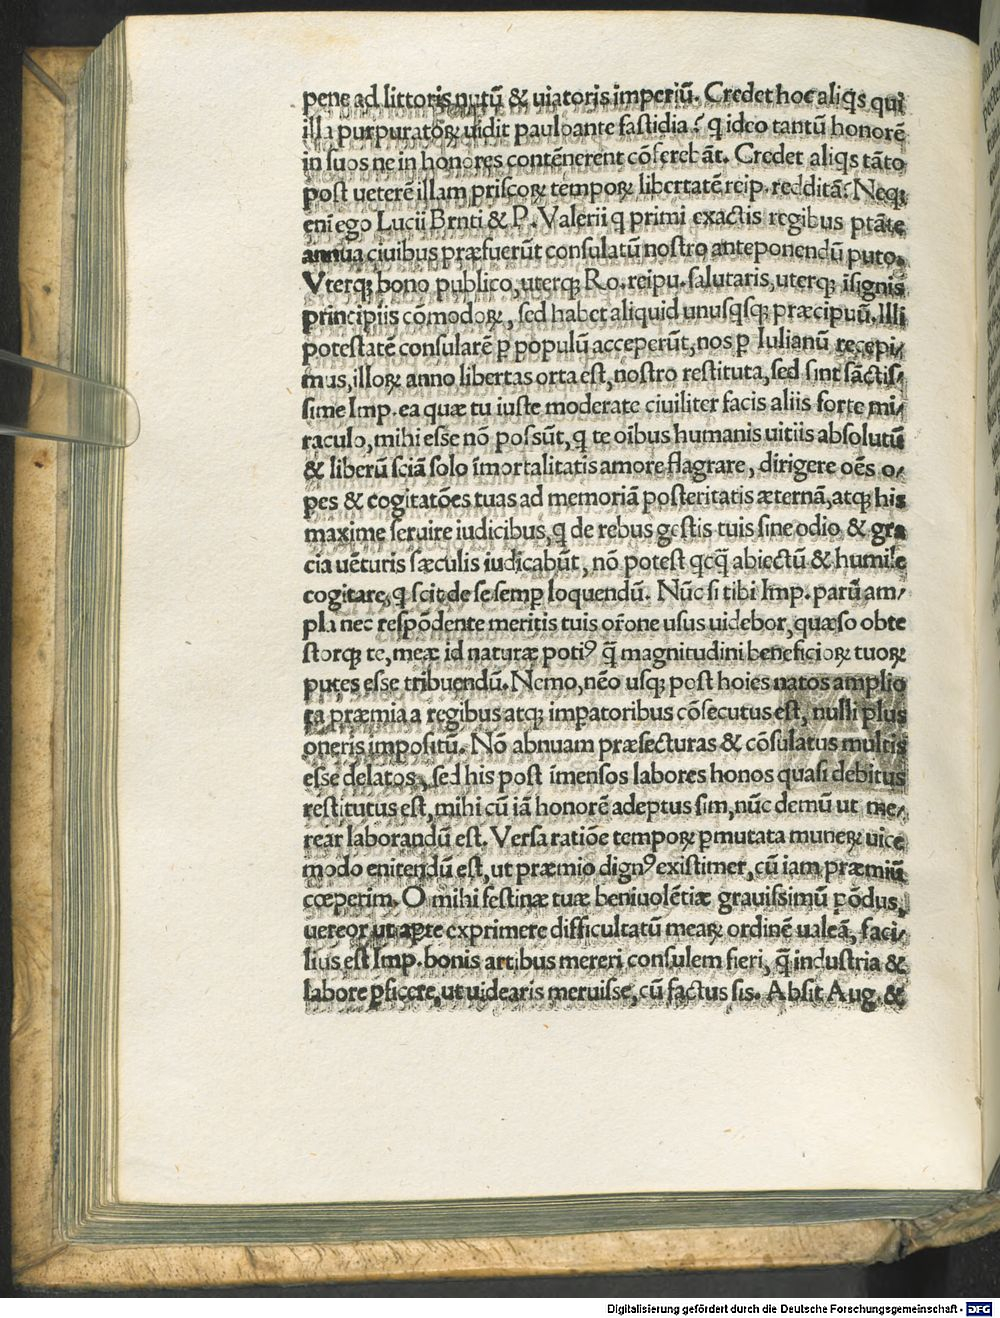 pene ad littoris nutū & uiatoris imperiū. Credet hoc aliq̄s qui
illa purpuratoꝝ uidit pauloante fastidia? q ideo tantū honorē
in suos ne in honores contēnerent cōferebāt. Credet aliq̄s tāto
post ueterē illam priscoꝝ tempoꝝ libertatē reip. redditā? Neqꝫ
eni ego Lucii Brnti & P. Valerii q primi exactis regibus ptāte
annua ciuibus præfuerūt consulatū nostro anteponendū puto.
Vterqꝫ bono publico, uterqꝫ Ro. reipu. salutaris, uterqꝫ isignis
principiis cōmodoꝝ, sed habet aliquid unusqsqꝫ præcipuū. Illi
potestatē consularē ꝑ populū acceperūt, nos ꝑ Iulianū recepi⸗
mus, illoꝝ anno libertas orta est, nostro restituta, sed sint sāctis⸗
sime Imp. ea quæ tu iuste moderate ciuiliter facis aliis forte mi⸗
raculo, mihi esse nō possūt, q te oībus humanis uitiis absolutū
& liberū sciā solo īmortalitatis amore flagrare, dirigere oēs o⸗
pes & cogitatōes tuas ad memoriā posteritatis æternā, atqꝫ his
maxime seruire iudicibus, q̄ de rebus gestis tuis sine odio & gra
cia uēturis sæculis iudicabūt, nō potest qcq̄ abiectū & humile
cogitare, q̄ scit de se semꝑ loquendū. Nūc si tibi Imp. parū am⸗
pla nec respōdente meritis tuis or̄one usus uidebor, quæso obte
storqꝫ te, meæ id naturæ potiꝰ q̄ magnitudini beneficioꝝ tuoꝝ
putes esse tribuendū. Nemo, nēo usqꝫ post hoies natos amplio
ra præmia a regibus atqꝫ imꝑatoribus cōsecutus est, nulli plus
oneris impositū. Nō abnuam præfecturas & cōsulatus multis
esse delatos, sed his post īmensos labores honos quasi debitus
restitutus est, mihi cū iā honorē adeptus sim, nūc demū ut me⸗
rear laborandū est. Versa ratiōe tempoꝝ ꝑmutata muneꝝ uice
modo enitendū est, ut præmio dignꝰ existimer, cū iam præmiū
cœperim. O mihi festinæ tuæ beniuolētiæ grauissimū pōdus,
uereor ut aꝑte exprimere difficultatū meaꝝ ordinē ualeā, faci⸗
lius est Imp. bonis artibus mereri consulem fieri, q̄ industria &
labore ꝑficere, ut uidearis meruisse, cū factus sis. Absit Aug. &
Digitalisierung gefördert durch die Deutsche Forschungsgemeinschaft - DFG